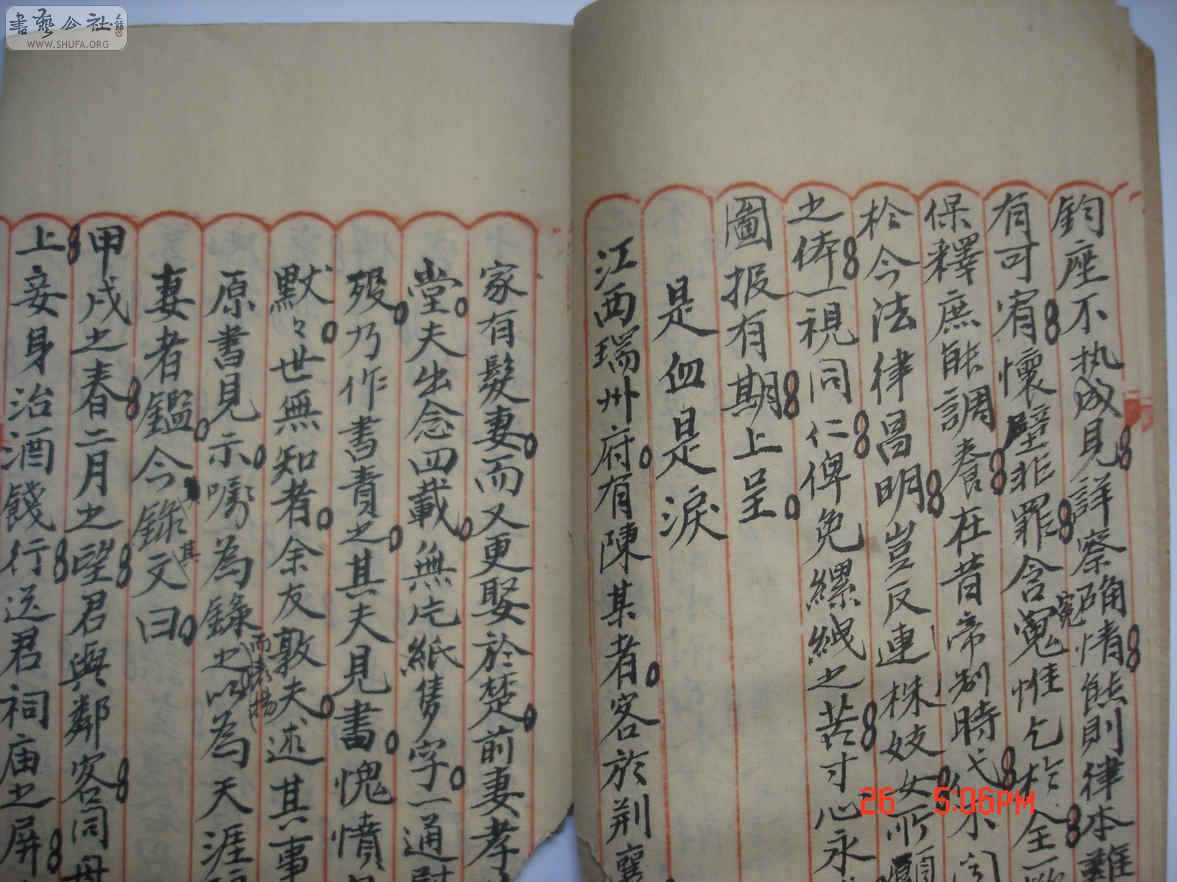 書藝公社
WWW.SHUFA.ORG
鈞座不执成見詳察確情能則律本難
有可宥懷璧非罪含冤惟乞於全
保釋庶能調養在昔帝制時代
於今法律昌明豈反連株妓女所願
之倖一視同仁俾免縲絏之苦寸心永
圖报有期上呈
是血是淚
江西瑞州府有陳某者客於荆襄
家有髮妻而又更娶於楚前妻孝
堂夫出念四載無片紙隻字一通
殁乃作書責之其夫見書愧憤
默々世無知者余友敦夫述其事
原書見示囑為錄之以為天涯
而表揚
妻者鑑今錄其文曰
甲戌之春二月之望君與鄰客同
上妾身治酒餞行送君祠庙之屏
26 5:06PM